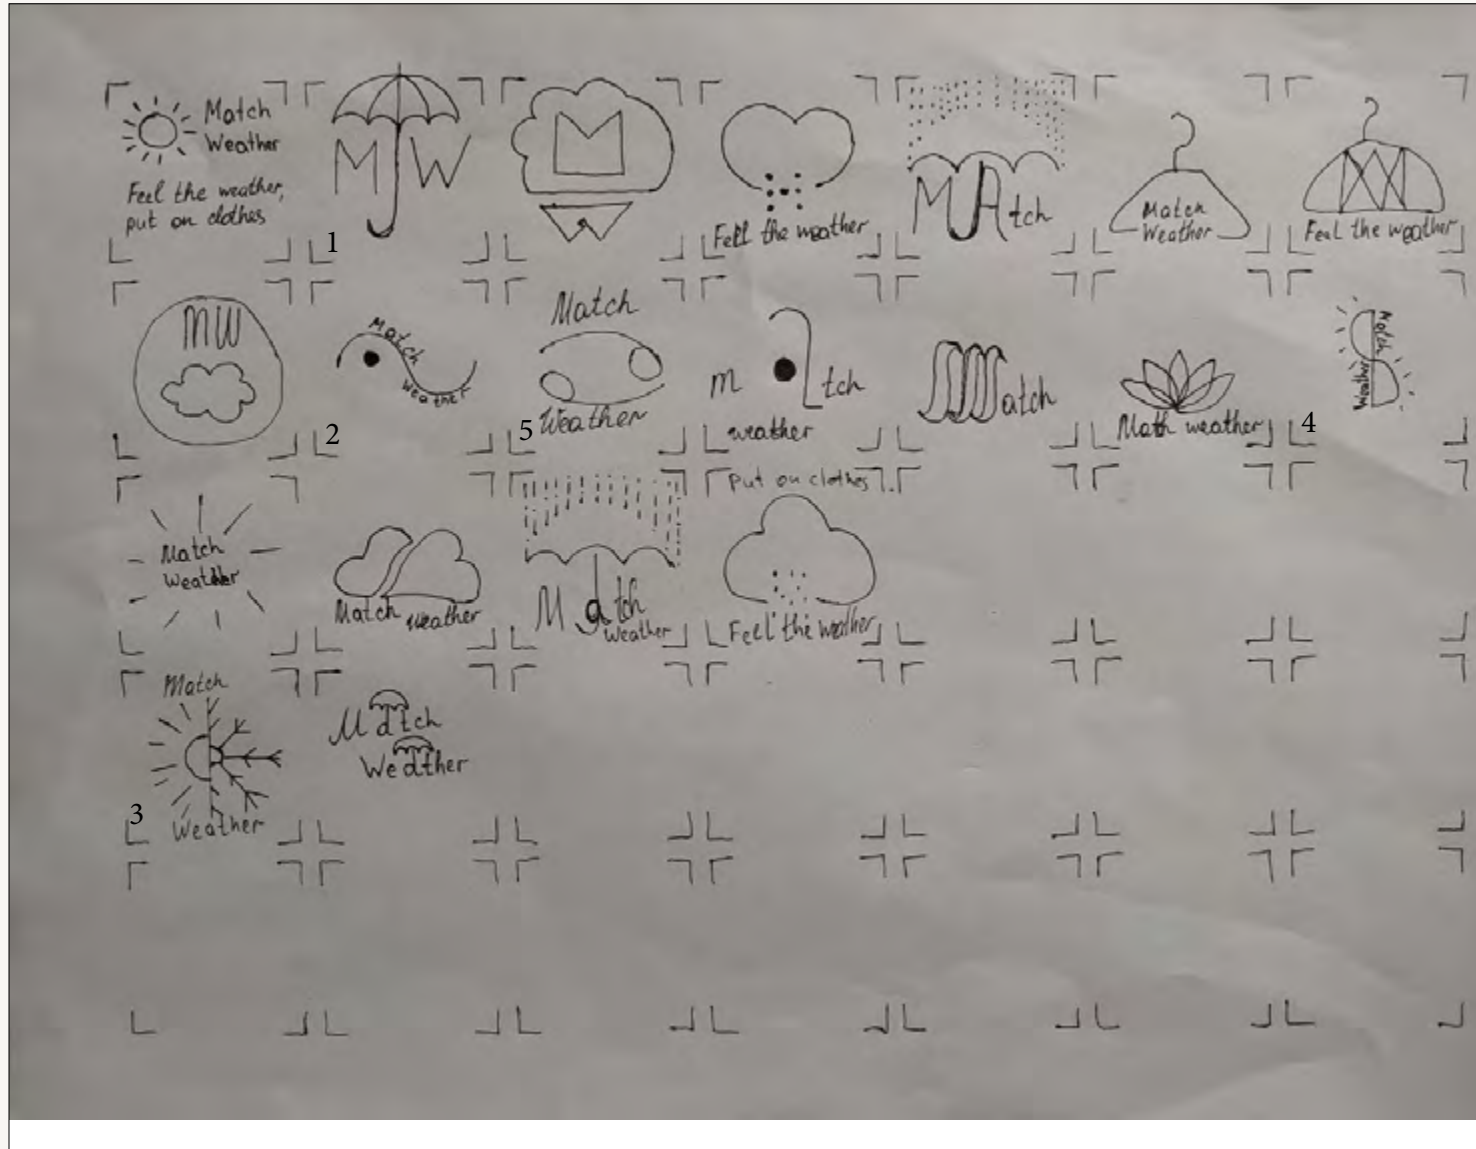 Match
Weather
Feel the weather,
put on clothes
M W
1
M
W
Fell the weather
MAtch
Match
Weather
MW
Feel the weather
MW
Match
Weather
2
Match
Weather
5
m tch
weather
Match
Math weather
4
Match
Weather
Match
Weather
Match weather
Match
Weather
put on clothes
Feel the weather
Match
Weather
3
Match
Weather